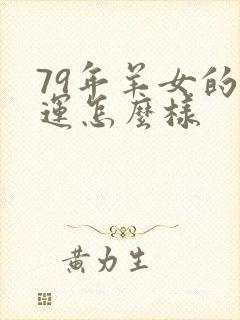 79年羊女的
運怎麼樣
黃力生